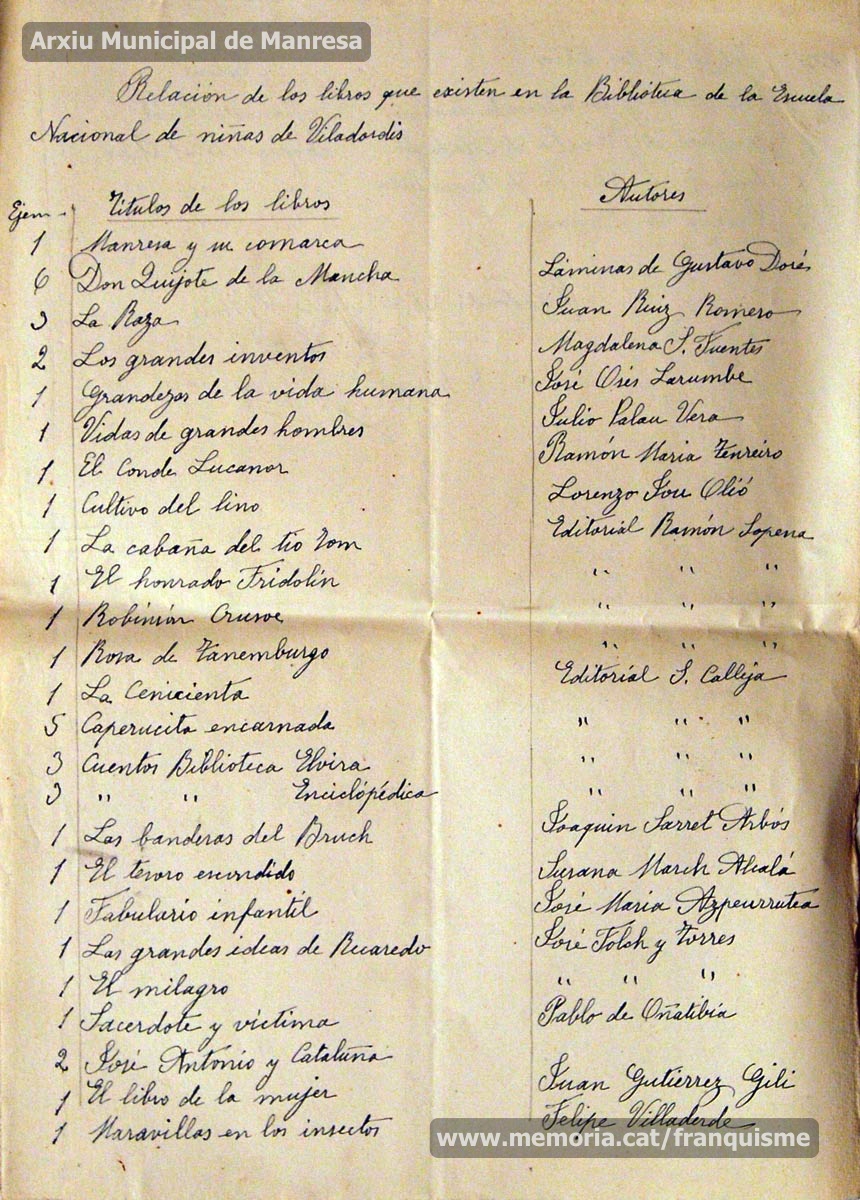 Arxiu Municipal de Manresa
Relación de los libros que existen en la Biblioteca de la Escuela
Nacional de niñas de Viladordis
Ejem. Titulos de los libros Autores
1 Manresa y su comarca
6 Don Quijote de la Mancha Láminas de Gustavo Dorés
3 La Raza Juan Ruiz Romero
2 Los grandes inventos Magdalena S. Fuentes
1 Grandezas de la vida humana José Osés Larumbe
1 Vidas de grandes hombres Julio Palau Vera
1 El Conde Lucanor Ramón Maria Tenreiro
1 Cultivo del lino Lorenzo Jou Olió
1 La cabaña del tio Tom Editorial Ramón Sopena
1 El honrado Fridolín " " "
1 Robinsón Crusoe " " "
1 Rosa de Tanemburgo " " "
1 La Cenicienta Editorial S. Calleja
5 Caperucita encarnada " " "
3 Cuentos Biblioteca Elvira " " "
3 " " Enciclópédica " " "
1 Las banderas del Bruch Joaquin Sarret Arbós
1 El tesoro escondido Susana March Alcalá
1 Fabulario infantil José Maria Azpeurrutea
1 Las grandes ideas de Recaredo José Folch y Torres
1 El milagro " " "
1 Sacerdote y víctima Pablo de Oñatibia
2 José Antonio y Cataluña
1 El libro de la mujer Juan Gutiérrez Gili
1 Maravillas en los insectos Felipe Villaderde
www.memoria.cat/franquisme